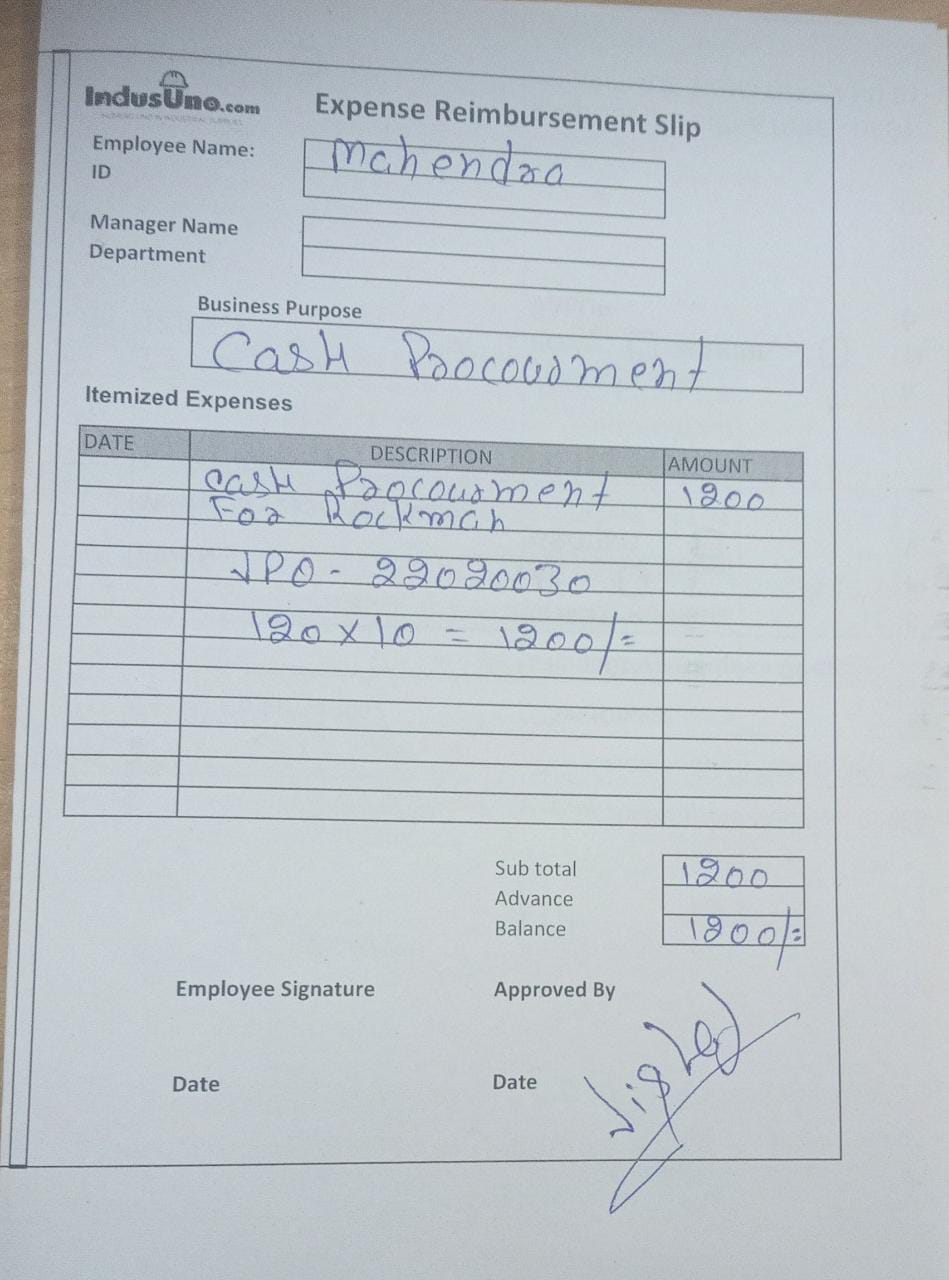 IndusUno.com
Expense Reimbursement Slip
Employee Name: Mahendra
ID
Manager Name
Department
Business Purpose
Cash Procourment
Itemized Expenses
DATE DESCRIPTION AMOUNT
Cash Procourment 1200
For Rockman
JPO - 22020030
120 x 10 = 1200/=
Sub total 1200
Advance
Balance 1200/=
Employee Signature Approved By
Date Date